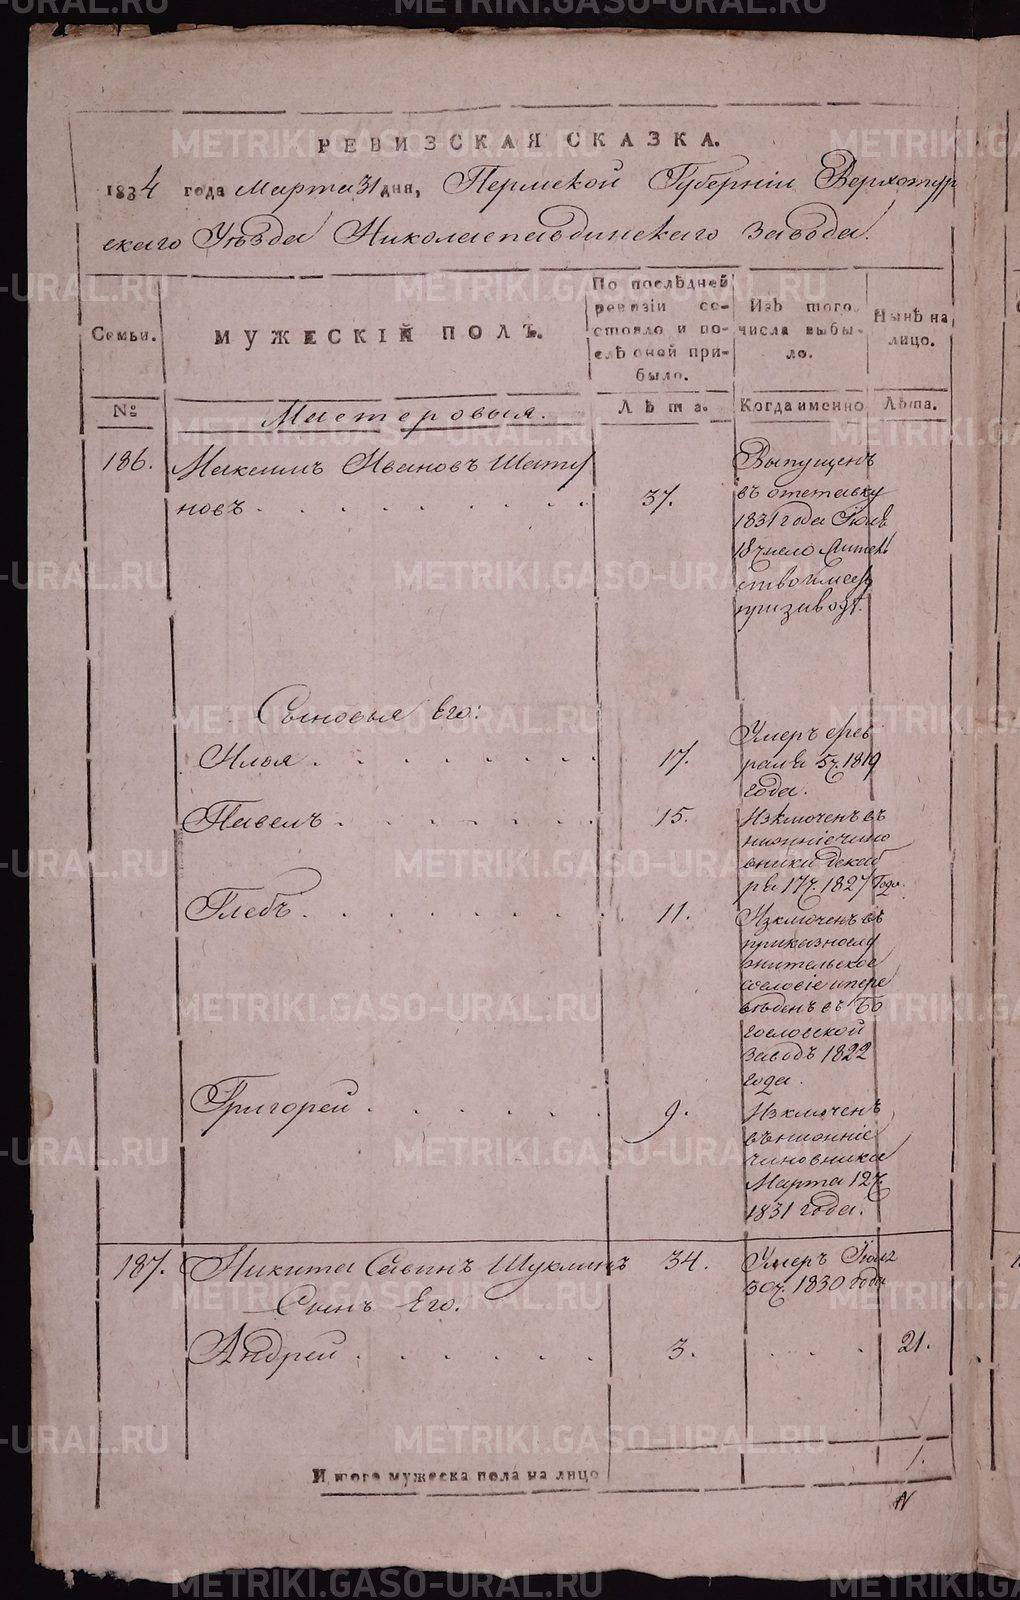 РЕВИЗСКАЯ СКАЗКА.
1834 года Марта 31 дня, Пермской Губерніи Верхотур
скаго Уѣзда Николаепавдинскаго завода.
Семьи.
МУЖЕСКІЙ ПОЛЪ.
По послѣдней
ревизіи со-
стояло и по-
слѣ оной при-
было.
Изъ того
числа выбы-
ло.
Нынѣ на
лицо.
№
Мастеровыя.
Лѣта.
Когда именно
Лѣта.
186.
Максимъ Ивановъ Шату
новъ
37.
Выпущенъ
въ отставку
1831 года Іюля
18 число
при заводѣ.
Сыновья Его:
Илья
17.
Умеръ Фев
раля 5 ч. 1819
года.
Павелъ
15.
Изключенъ въ
нижніе чино
вники Декаб
ря 17 ч. 1827 Года.
Глебъ
11.
Изключенъ въ
приказнослу
жительское
сословіе и пере
вѣденъ въ Бо
гословской
заводъ 1822
года.
Григорей
9.
Изключенъ
въ нижніе
чиновники
Марта 12 ч.
1831 года.
187.
Никита Савинъ Шуклинъ
34.
Умеръ Іюля
30 ч. 1830 года
Сынъ Его.
Андрей
3.
21.
Итого мужеска пола на лицо
1.
METRIKI.GASO-URAL.RU